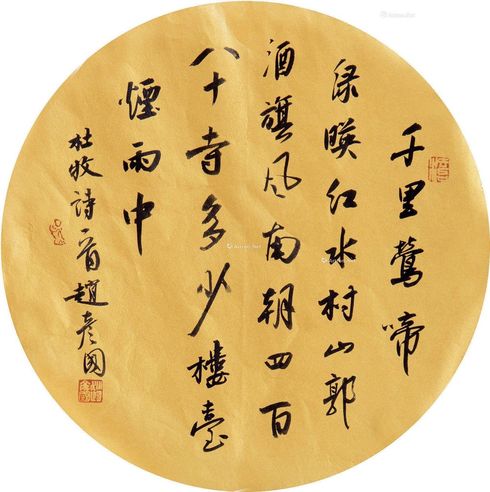 千里鶯啼
绿暎红水村山郭
酒旗风南朝四百
八十寺多少樓臺
煙雨中
杜牧詩一首趙彦國